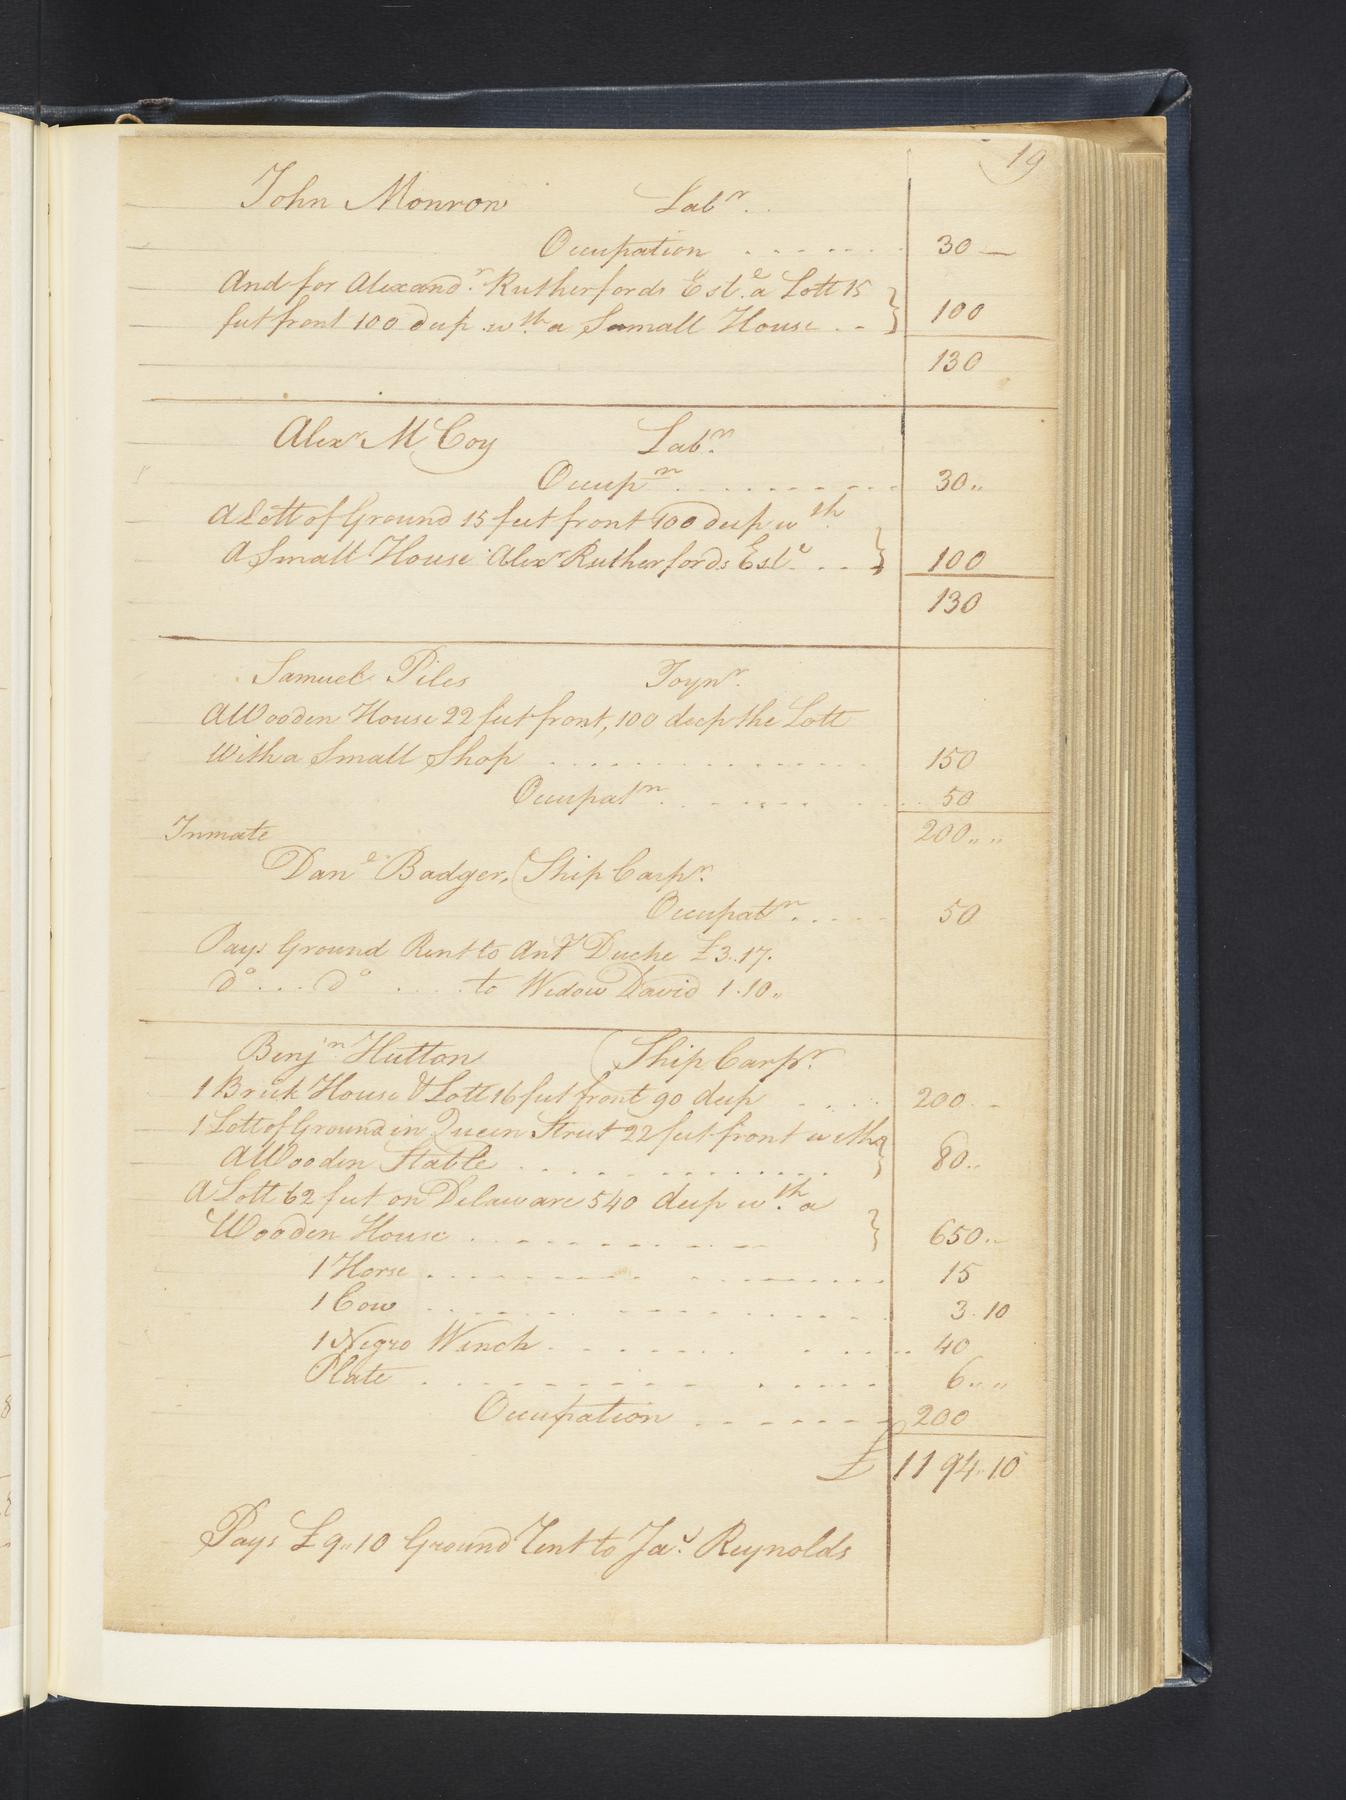 19
John Monrow Labr.
Occupation 30
And for Alexandr. Rutherfords Este. a Lott 15
feet front 100 deep wth. a Small House 100
130
Alexr McCoy Labr.
Occupn 30
A Lott of Ground 15 feet front 100 deep wth.
A Small House Alexr Rutherfords Este 100
130
Samuel Piles Joynr.
A Wooden House 22 feet front, 100 deep the Lott
With a Small Shop 150
Occupatn. 50
Inmate 200
Danel Badger, Ship Carpr.
Occupatn. 50
Pays Ground Rent to Anty Duche £3..17.
do...do to Widow David 1.10
Benjn. Hutton Ship Carpr.
1 Brick House & Lott 16 feet front 90 deep 200
1 Lott of Ground in Queen Street 22 feet front with
A Wooden Stable 80
A Lott 62 feet on Delaware 540 deep wth. a
Wooden House 650
1 Horse 15
1 Cow 3.10
1 Negro Winch 40
Plate 6
Occupation 200
£ 1194.10
Pays £9..10 Ground Rent to Jas. Reynolds